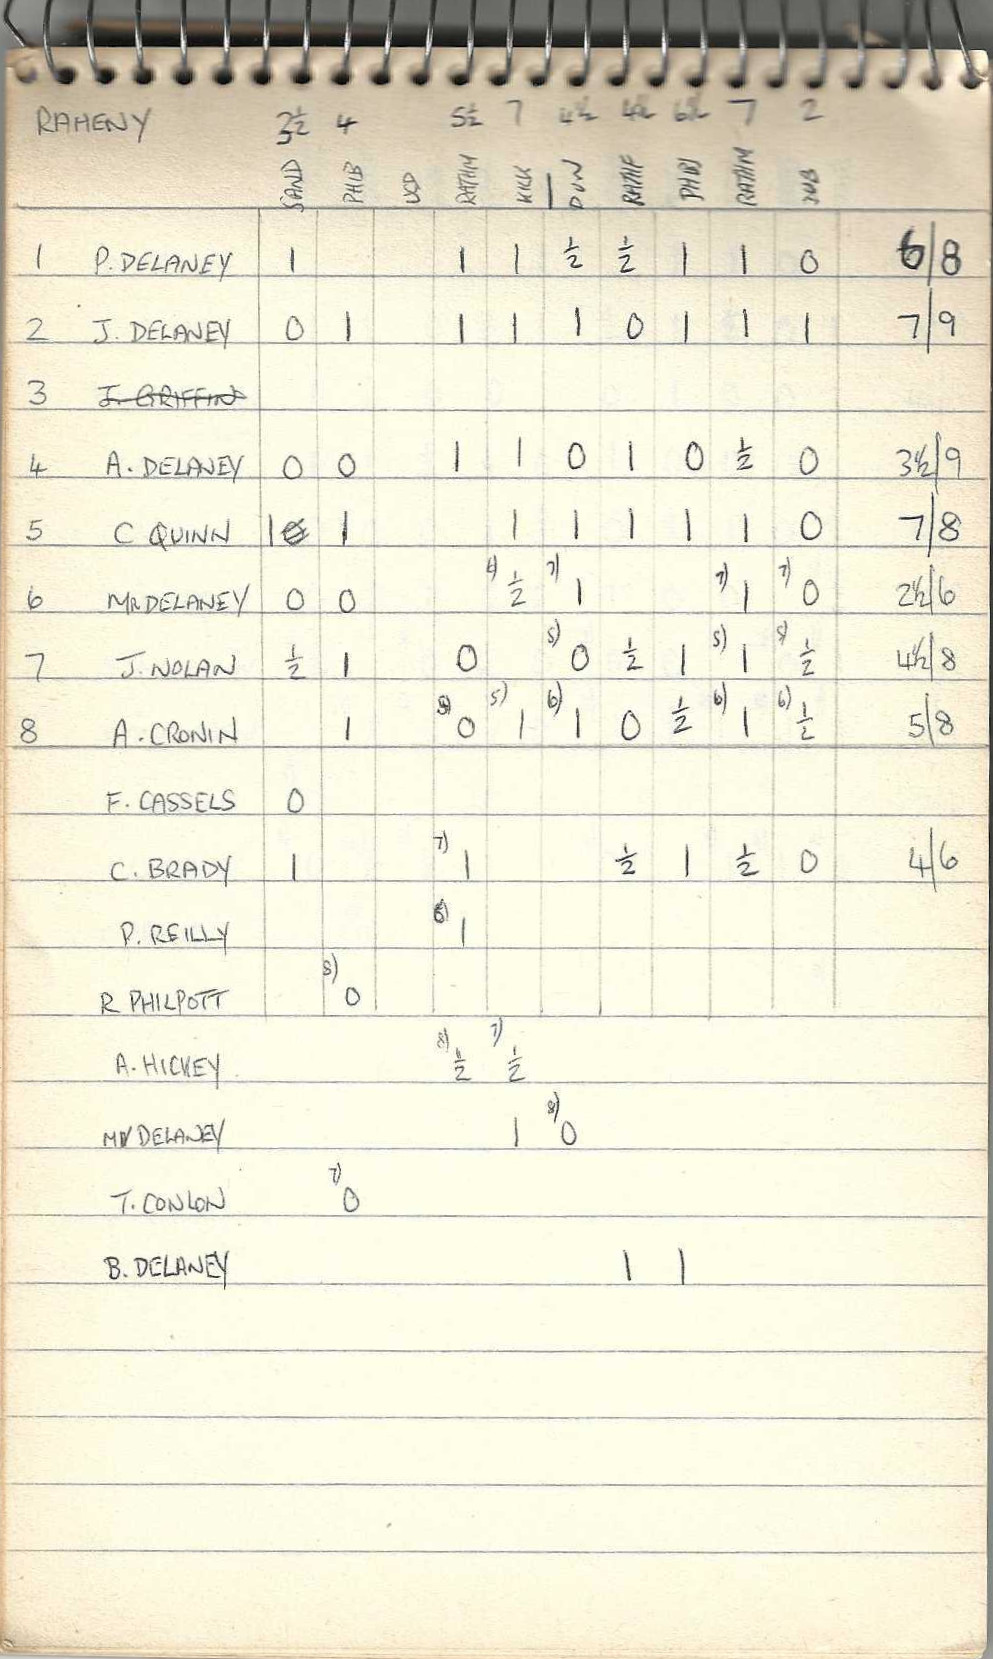 RAHENY 3½ 4 5½ 7 4½ 4½ 6½ 7 2
SAND PHIB UCD RATHM KILK DUN RATHF PHIB RATHM
1 P. DELANEY 1 1 1 ½ ½ 1 1 0 6/8
2 J. DELANEY 0 1 1 1 1 0 1 1 1 7/9
3 J. GRIFFIN
4 A. DELANEY 0 0 1 1 0 1 0 ½ 0 3½/9
5 C QUINN 1 0 1 1 1 1 1 1 0 7/8
6 MR DELANEY 0 0 ½ 7) 1 7) 1 7) 0 2½/6
7 J. NOLAN ½ 1 0 5) 0 ½ 1 5) 1 5) ½ 4½/8
8 A. CRONIN 1 0 5) 1 6) 1 0 ½ 6) 1 6) ½ 5/8
F. CASSELS 0
C. BRADY 1 7) 1 ½ 1 ½ 0 4/6
P. REILLY 6) 1
R PHILPOTT 8) 0
A. HICKEY 8) ½ 7) ½
DELANEY 1 8) 0
T. CONLON 7) 0
B. DELANEY 1 1